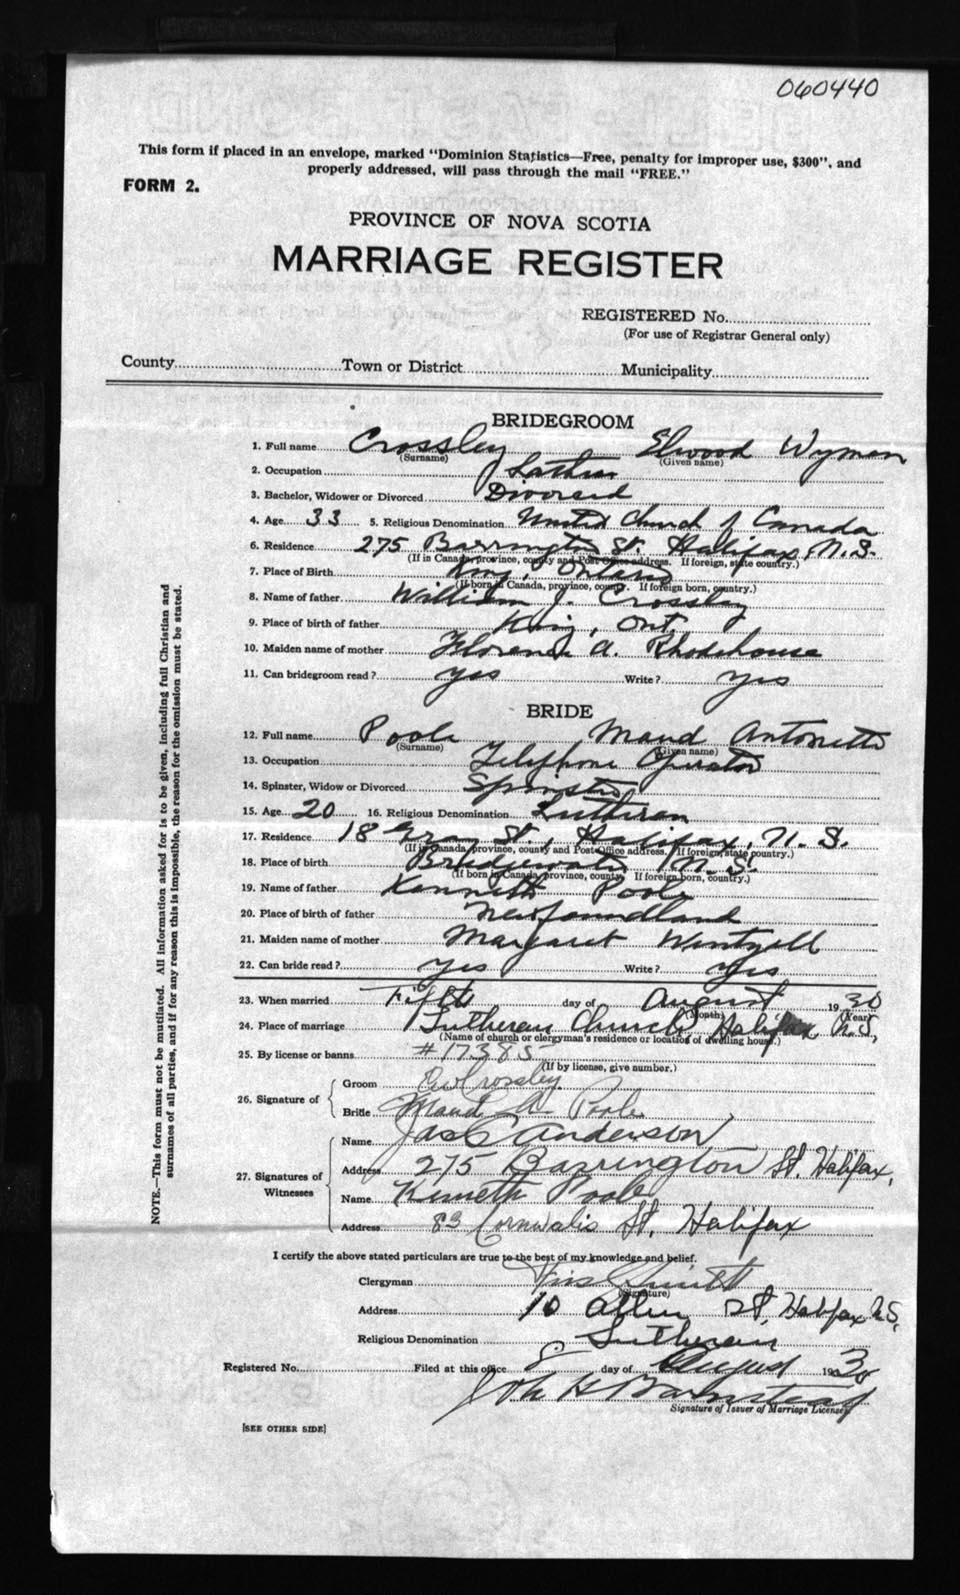 060440
This form if placed in an envelope, marked "Dominion Statistics—Free, penalty for improper use, $300", and
properly addressed, will pass through the mail "FREE."
FORM 2.
PROVINCE OF NOVA SCOTIA
MARRIAGE REGISTER
REGISTERED No.
(For use of Registrar General only)
County Town or District Municipality
BRIDEGROOM
1. Full name Crossley Elwood Wyman
(Surname) (Given name)
2. Occupation Lather
3. Bachelor, Widower or Divorced Divorced
4. Age 33 5. Religious Denomination United Church of Canada
6. Residence 275 Barrington St. Halifax, N.S.
(If in Canada, province, county and Post Office address. If foreign, state country.)
7. Place of Birth King, Ontario
(If born in Canada, province, county. If foreign born, country.)
8. Name of father William J. Crossley
9. Place of birth of father King, Ont.
10. Maiden name of mother Florence A. Rhodehouse
11. Can bridegroom read? yes Write? yes
BRIDE
12. Full name Poole Maud Antonette
(Surname) (Given name)
13. Occupation Telephone Operator
14. Spinster, Widow or Divorced Spinster
15. Age 20 16. Religious Denomination Lutheran
17. Residence 18 Gray St., Halifax, N.S.
(If in Canada, province, county and Post Office address. If foreign, state country.)
18. Place of birth Bridgewater N.S.
(If born in Canada, province, county. If foreign born, country.)
19. Name of father Kenneth Poole
20. Place of birth of father Newfoundland
21. Maiden name of mother Margaret Wentzell
22. Can bride read? yes Write? yes
23. When married Fifth day of August 1930
(Month) (Year)
24. Place of marriage Lutheran Church Halifax N.S.
(Name of church or clergyman's residence or location of dwelling house.)
25. By license or banns #17385
(If by license, give number.)
26. Signature of
Groom E W Crossley
Bride Maud A Poole
27. Signatures of Witnesses
Name Jas C Anderson
Address 275 Barrington St. Halifax,
Name Kenneth Poole
Address 83 Cornwalis St, Halifax
I certify the above stated particulars are true to the best of my knowledge and belief.
Clergyman
(Signature)
Address 10 Allen St, Halifax N.S.
Religious Denomination Lutheran
Registered No. Filed at this office 8 day of August 1930
Joh H Barnstead
Signature of Issuer of Marriage Licenses
[SEE OTHER SIDE]
NOTE.—This form must not be mutilated. All information asked for is to be given, including full Christian and
surnames of all parties, and if for any reason this is impossible, the reason for the omission must be stated.